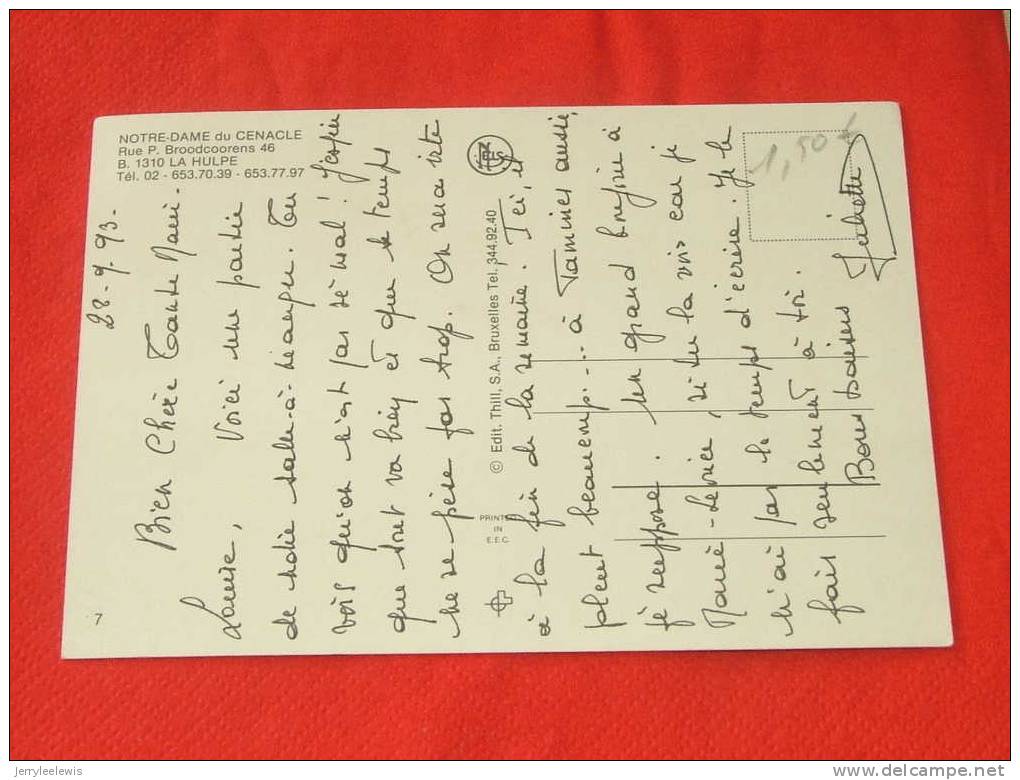 NOTRE-DAME du CENACLE
Rue P. Broodcoorens 46
B. 1310 LA HULPE
Tél. 02 - 653.70.39 - 653.77.97
28-9-93-
Bien Chère Tante Marie-
Louise, Voici une partie
de notre salle-à-manger. Tu
vois qu'on n'est pas si mal ! J'espère
que tout va bien et que le temps
ne se pèse pas trop. On sera vite
à la fin de la semaine. Ici, il
pleut beaucoup... à Tamines aussi,
je suppose. Un grand bonjour à
Marie-Louise, si tu la vois car je
n'ai pas le temps d'écrire. Je le
fais seulement à toi.
Bons baisers
Juliette
7
© Edit. Thill, S.A., Bruxelles Tel. 344.92.40
PRINTED
IN
E.E.C.
1,50 €
jerryleelewis
delcampe.net